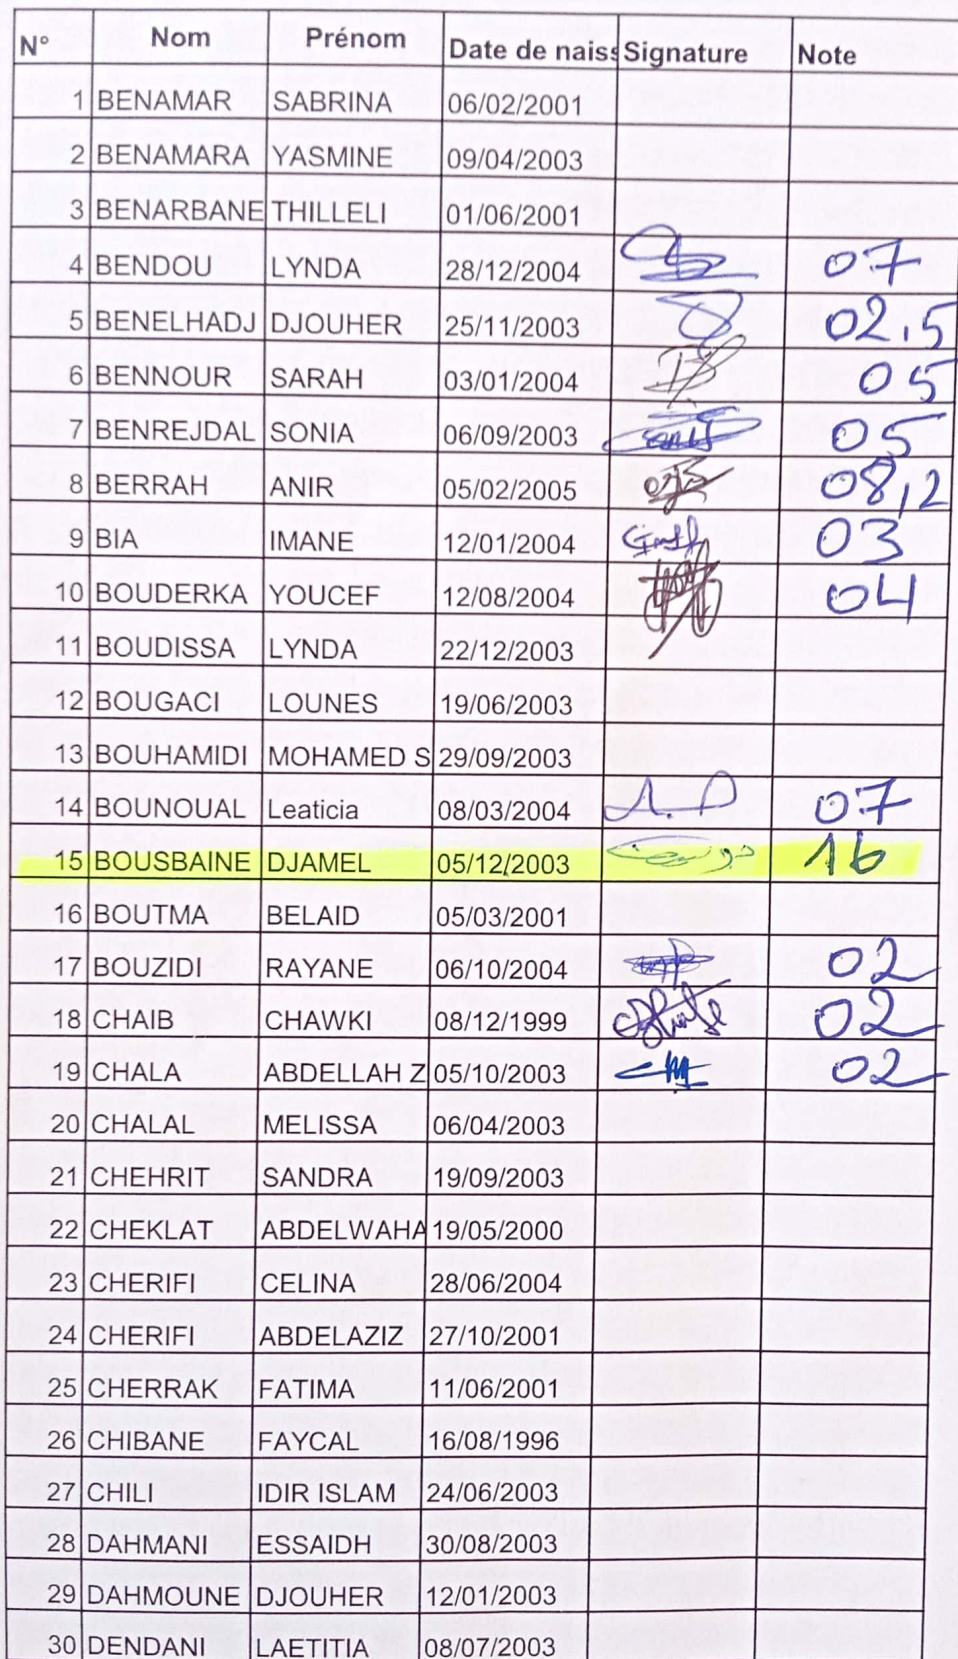 N° Nom Prénom Date de naiss Signature Note
1 BENAMAR SABRINA 06/02/2001
2 BENAMARA YASMINE 09/04/2003
3 BENARBANE THILLELI 01/06/2001
4 BENDOU LYNDA 28/12/2004 07
5 BENELHADJ DJOUHER 25/11/2003 02.5
6 BENNOUR SARAH 03/01/2004 05
7 BENREJDAL SONIA 06/09/2003 05
8 BERRAH ANIR 05/02/2005 08,2
9 BIA IMANE 12/01/2004 03
10 BOUDERKA YOUCEF 12/08/2004 04
11 BOUDISSA LYNDA 22/12/2003
12 BOUGACI LOUNES 19/06/2003
13 BOUHAMIDI MOHAMED S 29/09/2003
14 BOUNOUAL Leaticia 08/03/2004 07
15 BOUSBAINE DJAMEL 05/12/2003 16
16 BOUTMA BELAID 05/03/2001
17 BOUZIDI RAYANE 06/10/2004 02
18 CHAIB CHAWKI 08/12/1999 02
19 CHALA ABDELLAH Z 05/10/2003 02
20 CHALAL MELISSA 06/04/2003
21 CHEHRIT SANDRA 19/09/2003
22 CHEKLAT ABDELWAHA 19/05/2000
23 CHERIFI CELINA 28/06/2004
24 CHERIFI ABDELAZIZ 27/10/2001
25 CHERRAK FATIMA 11/06/2001
26 CHIBANE FAYCAL 16/08/1996
27 CHILI IDIR ISLAM 24/06/2003
28 DAHMANI ESSAIDH 30/08/2003
29 DAHMOUNE DJOUHER 12/01/2003
30 DENDANI LAETITIA 08/07/2003